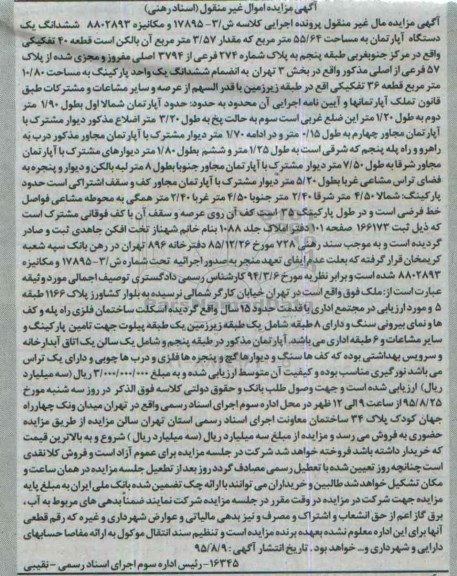 آگهی مزایده اموال غیر منقول (اسناد رهنی)
آگهی مزایده مال غیر منقول پرونده اجرایی کلاسه ش/۳- ۱۷۸۹۵ و مکانیزه ۸۸۰۲۸۹۳ ششدانگ یک
دستگاه آپارتمان به مساحت ۵۵/۶۴ متر مربع که مقدار ۳/۵۷ متر مربع آن بالکن است قطعه ۴۰ تفکیکی
واقع در مرکز جنوبغربی طبقه پنجم به پلاک شماره ۲۷۴ فرعی از ۳۷۹۴ اصلی مفروز و مجزی شده از پلاک
۵۷ فرعی از اصلی مذکور واقع در بخش ۳ تهران به انضمام ششدانگ یک واحد پارکینگ به مساحت ۱۰/۸۰
متر مربع قطعه ۳۶ تفکیکی واقع در طبقه زیرزمین با قدر السهم از عرصه و سایر مشاعات و مشترکات طبق
قانون تملک آپارتمانها و آیین نامه اجرایی آن محدود به حدود: حدود آپارتمان شمالا اول بطول ۱/۹۰ متر
دوم به طول ۱/۲۰ متر این ضلع غربی است سوم به حالت پخ به طول ۳/۲۰ متر اضلاع مذکور دیوار مشترک با
آپارتمان مجاور چهارم به طول ۰/۱۵ متر و در ادامه ۱/۷۰ متر دیوار مشترک با آپارتمان مجاور مذکور درب به
راهرو و راه پله پنجم که شرقی است به طول ۱/۲۵ متر و ششم بطول ۱/۸۰ متر دیوارهای مشترک با آپارتمان
مجاور شرقا به طول ۷/۵۰ متر دیوار مشترک با آپارتمان مجاور جنوبا بطول ۸ متر لبه بالکن و دیوار و پنجره به
فضای تراس مشاعی غربا بطول ۵/۲۰ متر دیوار مشترک با آپارتمان مجاور کف و سقف اشتراکی است حدود
پارکینگ: شمالا ۴/۵۰ متر شرقا ۲/۴۰ متر جنوبا ۴/۵۰ متر غربا ۲/۴۰ متر همگی به محوطه مشاعی فواصل
خط فرضی است و در طول پارکینگ ۳۵ است کف آن روی عرصه و سقف آن با کف فوقانی مشترک است
که ذیل ثبت ۱۶۶۱۷۳ صفحه ۱۰۱ دفتر املاک جلد ۱۰۸۸ بنام خانم شهناز تخت افکن جاهدی ثبت و صادر
گردیده است و به موجب سند رهنی ۷۲۸ مورخ ۸۵/۱۲/۲۶ دفترخانه ۸۹۶ تهران در رهن بانک سپه شعبه
کریمخان قرار گرفته که بعلت عدم ایفای تعهد منجر به صدور اجرائیه تحت شماره ش/۳- ۱۷۸۹۵ و مکانیزه
۸۸۰۲۸۹۳ شده است و برابر نظریه مورخ ۹۴/۳/۶ کارشناس رسمی دادگستری توصیف اجمالی مورد وثیقه
عبارت است از: ملک فوق واقع است در تهران خیابان کارگر شمالی نرسیده به بلوار کشاورز پلاک ۱۱۶۶ طبقه
۵ و مورد ارزیابی در مجتمع اداری با قدمت حدود ۱۵ سال واقع گردیده اسکلت ساختمان فلزی راه پله و کف
ها و نمای بیرونی سنگ و دارای ۸ طبقه شامل یک طبقه زیرزمین یک طبقه پیلوت جهت تامین پارکینگ و
سایر مشاعات و ۶ طبقه اداری می باشد. آپارتمان مذکور در طبقه پنجم و شامل یک سالن یک اتاق آبدارخانه
و سرویس بهداشتی بوده که کف ها سنگ و دیوارها گچ و پنجره ها فلزی و درب ها چوبی و دارای یک تراس
می باشد نورگیری مناسب بوده و کیفیت آن متوسط ارزیابی شده و به مبلغ ۳/۰۰۰/۰۰۰/۰۰۰ ریال (سه میلیارد
ریال) ارزیابی شده است و جهت وصول طلب بانک و حقوق دولتی کلاسه فوق الذکر در روز سه شنبه مورخ
۹۵/۸/۲۵ از ساعت ۹ الی ۱۲ ظهر در محل اداره سوم اجرای اسناد رسمی واقع در تهران میدان ونک چهارراه
جهان کودک پلاک ۳۴ ساختمان معاونت اجرای اسناد رسمی استان تهران سالن مزایده از طریق مزایده
حضوری به فروش می رسد و مزایده از مبلغ سه میلیارد ریال (سه میلیارد ریال) شروع و به بالاترین قیمت
که خریدار داشته باشد فروخته خواهد شد شرکت در جلسه مزایده برای عموم آزاد است و فروش کلا نقدی
است چنانچه روز تعیین شده با تعطیل رسمی مصادف گردد روز بعد از تعطیل جلسه مزایده در همان ساعت و
مکان تشکیل خواهد شد طالبین و خریداران می توانند با ارائه چک تضمین شده بانک ملی ایران به مبلغ پایه
مزایده جهت شرکت در مزایده در وقت مقرر در جلسه مزایده شرکت نمایند ضمناً بدهی های مربوط به آب،
برق گاز اعم از حق انشعاب و اشتراک و مصرف و نیز بدهی مالیاتی و عوارض شهرداری و غیره که رقم قطعی
آنها برای این اداره معلوم نشده بعهده برنده مزایده است و تنظیم سند انتقال موکول به ارائه مفاصا حسابهای
دارایی و شهرداری و... خواهد بود. تاریخ انتشار آگهی: ۹۵/۸/۹
۱۶۳۴۵- رئیس اداره سوم اجرای اسناد رسمی - نقیبی